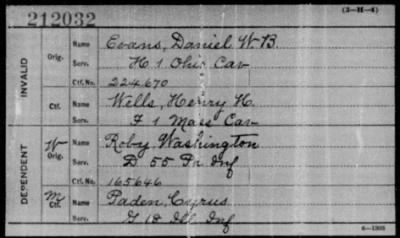 212032
(3-H-4)
INVALID
Orig.
Name Evans, Daniel W. B.
Serv. H 1 Ohio Cav
Ctf. No. 224670
Ctf.
Name Wells, Henry H.
Serv. F 1 Mass Cav
DEPENDENT
W
Orig.
Name Roby, Washington
Serv. D 55 Pa Inf
Ctf. No. 165646
M
Ctf.
Name Paden, Cyrus
Serv. G 18 Ill Inf